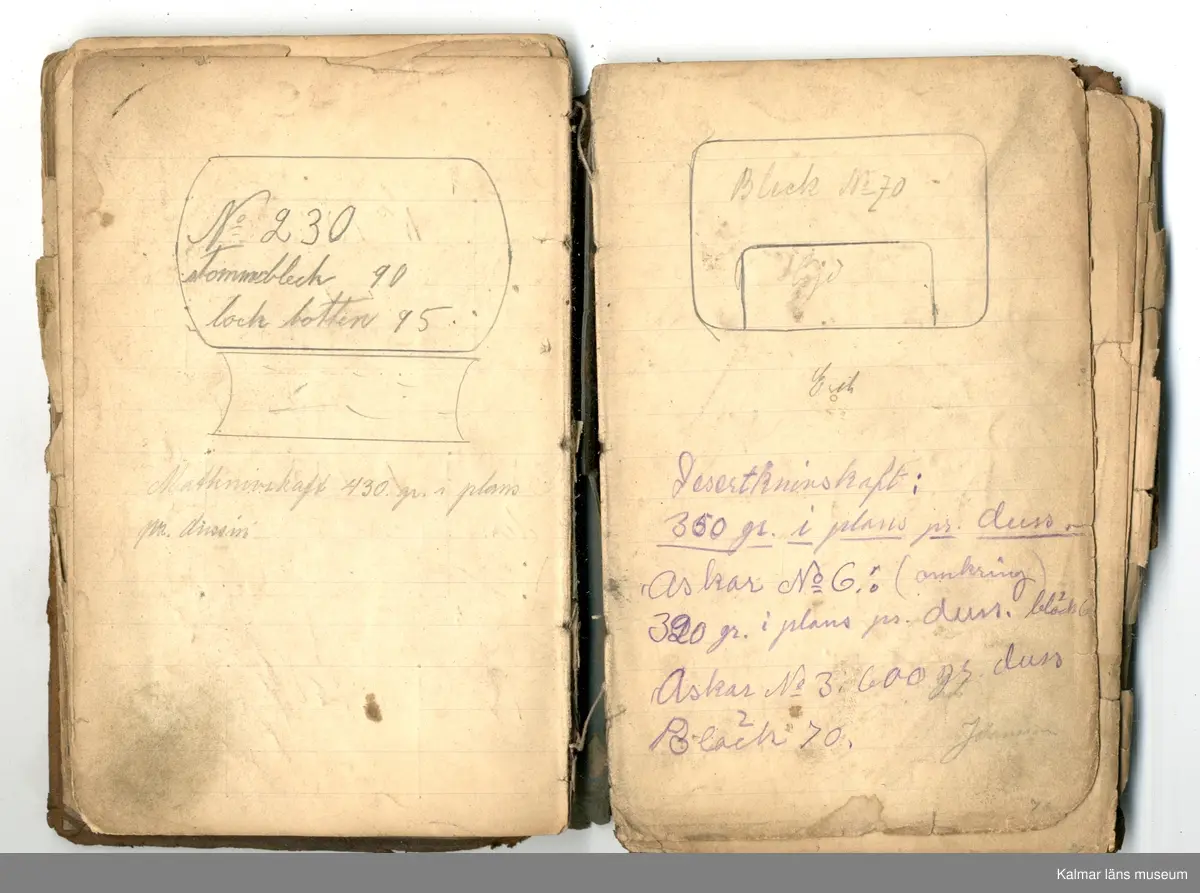 No 230
stommbleck 90
lock botten 95.
Matknivskaft 430 gr. i plans
pr. dussin
Bleck No 70
Erik
Desertknivskaft:
350 gr. i plans pr. duss.
Askar No 6: (omkring)
320 gr. i plans pr. duss. bläck 6
Askar No 3. 600 gr. duss
Bläck 70.
Kalmar läns museum